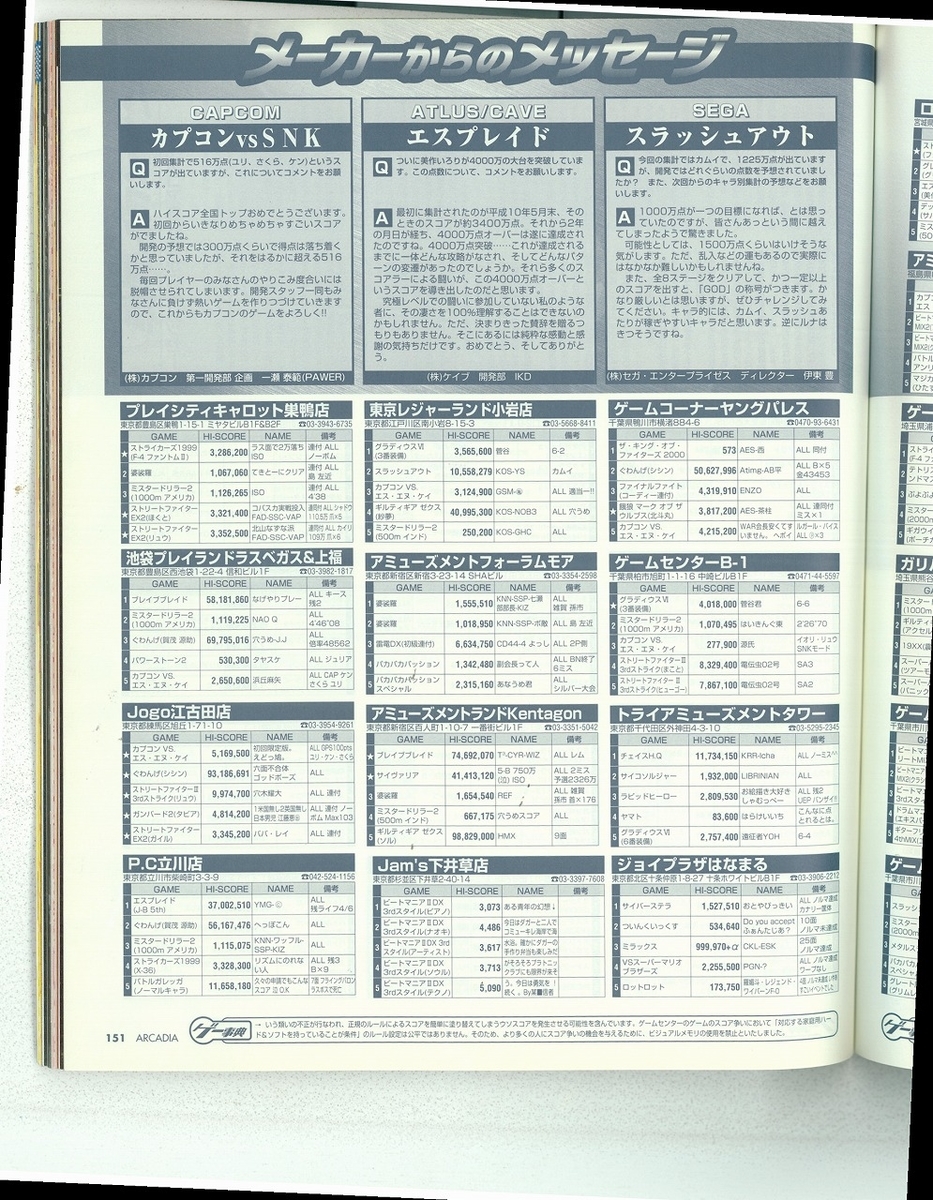 メーカーからのメッセージ
CAPCOM
カプコンvsSNK
Q 初回集計で516万点(ユリ、さくら、ケン)というス
コアが出ていますが、これについてコメントをお願
いします。
A ハイスコア全国トップおめでとうございます。
初回からいきなりめちゃめちゃすごいスコア
がでましたね。
開発の予想では300万点くらいで得点は落ち着く
かと思っていましたが、それをはるかに超える516
万点……。
毎回プレイヤーのみなさんのやりこみ度合いには
脱帽させられてしまいます。開発スタッフ一同もみ
なさんに負けず熱いゲームを作りつづけていきます
ので、これからもカプコンのゲームをよろしく!!
(株)カプコン 第一開発部 企画 一瀬 泰範(PAWER)
ATLUS/CAVE
エスプレイド
Q ついに美作いろりが4000万の大台を突破していま
す。この点数について、コメントをお願いします。
A 最初に集計されたのが平成10年5月末、その
ときのスコアが約3400万点。それから2年
の月日が経ち、4000万点オーバーは遂に達成され
たのですね。4000万点突破……これが達成される
までに一体どんな攻略がなされ、そしてどんなパター
ンの変遷があったのでしょうか。それら多くのス
コアラーによる闘いが、この4000万点オーバーと
いうスコアを導き出したのだと思います。
究極レベルでの闘いに参加していない私のような
者に、その凄さを100%理解することはできない
のかもしれません。ただ、決まりきった賛辞を贈るつ
もりもありません。そこにあるには純粋な感動と感
謝の気持ちだけです。おめでとう、そしてありがと
う。
(株)ケイブ 開発部 IKD
SEGA
スラッシュアウト
Q 今回の集計ではカムイで、1225万点が出ています
が、開発ではどれぐらいの点数を予想されていまし
たか? また、次回からのキャラ別集計の予想などをお願
いします。
A 1000万点が一つの目標になれば、とは思っ
ていたのですが、皆さんあっという間に越え
てしまったようで驚きました。
可能性としては、1500万点くらいはいけそうな
気がします。ただ、乱入などの運もあるので実際に
はなかなか難しいかもしれませんね。
また、全8ステージをクリアして、かつ一定以上
のスコアを出すと、「GOD」の称号がつきます。か
なり厳しいとは思いますが、ぜひチャレンジしてみ
てください。キャラ的には、カムイ、スラッシュあ
たりが稼ぎやすいキャラだと思います。逆にルナは
きつそうですね。
(株)セガ・エンタープライゼス ディレクター 伊東 豊
プレイシティキャロット巣鴨店
東京都豊島区巣鴨1-15-1 ミヤタビルB1F&B2F ☎03-3943-6735
GAME HI-SCORE NAME 備考
★ ストライカーズ1999 (F-4 ファントムII) 3,286,200 ラス面で2万落ち ISO 連付 ALL ノーボム
2 婆裟羅 1,067,060 てきとーにクリア 連付 ALL 島 左近
3 ミスタードリラー2 (1000m アメリカ) 1,126,265 ISO 連付 ALL 4'38
★ ストリートファイター EX2(ほくと) 3,321,400 コパスカ実戦投入 FAD-SSC-VAP
★ ストリートファイター EX2(リュウ) 3,352,500 北山なずな派 FAD-SSC-VAP
東京レジャーランド小岩店
東京都江戸川区南小岩8-15-3 ☎03-5668-8411
GAME HI-SCORE NAME 備考
1 グラディウスVI (3番装備) 3,565,600 菅谷 6-2
2 スラッシュアウト 10,558,279 KOS-YS カムイ
3 カプコン VS. エス・エヌ・ケイ 3,124,900 ALL 適当ー!!
4 ギルティギア ゼクス (紗夢) 40,995,300 KOS-NOB3 ALL 穴うめ
5 ミスタードリラー2 (500m インド) 250,200 KOS-GHC ALL
ゲームコーナーヤングパレス
千葉県鴨川市横渚884-6 ☎0470-93-6431
GAME HI-SCORE NAME 備考
1 ザ・キング・オブ・ファイターズ 2000 573 AES-西 ALL 同付
2 ぐわんげ(シシン) 50,627,996 Atimg-AB平 ALL B×5 金43453
3 ファイナルファイト (コーディー連付) 4,319,910 ENZO ALL
★ 餓狼 マーク オブ ザ ウルブス(北斗丸) 3,817,200 AES-茶柱 ALL 連同付 ミス×1
5 カプコン VS. エス・エヌ・ケイ 4,215,200
池袋プレイランドラスベガス&上福
東京都豊島区西池袋1-22-4 信和ビル1F ☎03-3982-1817
GAME HI-SCORE NAME 備考
1 ブレイブブレイド 58,181,860 なげやりプレー ALL キース 残2
2 ミスタードリラー2 (1000m アメリカ) 1,119,225 NAO Q ALL 4'46"08
3 ぐわんげ(賀茂 源助) 69,795,016 穴うめJ.J ALL 倍率48562
4 パワーストーン2 530,300 タヤスケ ALL ジュリア
5 カプコン VS. エス・エヌ・ケイ 2,650,600 浜丘麻矢 ALL CAP ケン さくら ユリ
アミューズメントフォーラムモア
東京都新宿区新宿3-23-14 SHAビル ☎03-3354-2598
GAME HI-SCORE NAME 備考
1 婆裟羅 1,555,510 KNN-SSP-七瀬 部部長-KIZ ALL 雑賀 孫市
2 婆裟羅 1,018,950 KNN-SSP-ボ敵 ALL 島 左近
3 雷電DX(初級連付) 6,634,750 CD44-4 よっし ALL 2P側
4 パカパカパッション 1,342,480 副会長って人 ALL BN終了 6ミス
5 パカパカパッション スペシャル 2,315,160 あなうめ君 ALL シルバー大会
ゲームセンターB-1
千葉県柏市旭町1-1-16 中崎ビルB1F ☎0471-44-5597
GAME HI-SCORE NAME 備考
★ グラディウスVI (3番装備) 4,018,000 管谷君 6-6
2 ミスタードリラー2 (1000m アメリカ) 1,070,495 はいきんぐ東 2'26"70
3 カプコン VS. エス・エヌ・ケイ 277,900 源氏 イオリ・リュウ SNKモード
4 ストリートファイターIII 3rdストライク(まこと) 8,329,400 電伝虫02号 SA3
5 ストリートファイターIII 3rdストライク(ヒューゴー) 7,867,100 電伝虫02号 SA2
Jogo江古田店
東京都練馬区旭丘1-71-10 ☎03-3954-9261
GAME HI-SCORE NAME 備考
★ カプコン VS. エス・エヌ・ケイ 5,169,500 初回限定版。 えどっ娘。 ALL GPS100pts ユリ・ケン・さくら
★ ぐわんげ(シシン) 93,186,691 六面不合体 ゴッドボーズ ALL
3 ストリートファイターIII 3rdストライク(リュウ) 9,974,700 穴木耀大 ALL 連付
★ ガンバード2(タビア) 4,814,200 ALL 連付 ノーボム Max103
★ ストリートファイター EX2(ガイル) 3,345,200 パパ・レイ ALL 連付
アミューズメントランドKentagon
東京都新宿区百人町1-10-7 一番街ビル1F ☎03-3351-5042
GAME HI-SCORE NAME 備考
★ ブレイブブレイド 74,692,070 T²-CYR-WIZ ALL レム
★ サイヴァリア 41,413,120 5-8 750万 (立) ISO ALL 2ミス 予選2326万
3 婆裟羅 1,654,540 REF ALL 雑賀 孫市 首×176
4 ミスタードリラー2 (500m インド) 667,175 穴うめスコア ALL
5 ギルティギア ゼクス (ソル) 98,829,000 HMX 9面
トライアミューズメントタワー
東京都千代田区外神田4-3-10 ☎03-5295-2345
GAME HI-SCORE NAME 備考
1 チェイスH.Q 11,734,150 KRR-Icha ALL ノーミス^^
2 サイコソルジャー 1,932,000 LIBRINIAN ALL
3 ラビッドヒーロー 2,809,530 お絵描き大好き しゃむっぺー ALL 残2 UEP バンザイ!!
4 ヤマト 83,600 はらけいいち こんなに点 とれるとは。
5 グラディウスVI (6番装備) 2,757,400 遠征者YOH 6-4
P.C立川店
東京都立川市柴崎町3-3-9 ☎042-524-1156
GAME HI-SCORE NAME 備考
1 エスプレイド (J-B 5th) 37,002,510 YMG-© ALL 残ライフ4/6
2 ぐわんげ(賀茂 源助) 56,167,476 へっぽこん ALL
3 ミスタードリラー2 (1000m アメリカ) 1,115,075 KNN-ワッフル- SSP-KIZ ALL
4 ストライカーズ1999 (X-36) 3,328,300 リズムにのれな い人 ALL 残3 B×9
5 バトルガレッガ (ノーマルキャラ) 11,658,180
Jam's下井草店
東京都杉並区下井草2-40-14 ☎03-3397-7608
GAME HI-SCORE NAME 備考
1 ビートマニアII DX 3rdスタイル(ピアノ) 3,073 ある青年の幻想↓
2 ビートマニアII DX 3rdスタイル(ナオキ) 4,486
3 ビートマニアII DX 3rd スタイル(アーティスト) 3,617
4 ビートマニアII DX 3rdスタイル(ソウル) 3,713
5 ビートマニアII DX 3rdスタイル(テクノ) 5,090
ジョイプラザはなまる
東京都北区十条仲原1-8-27 十条ホワイトビルB1F ☎03-3906-2212
GAME HI-SCORE NAME 備考
1 サイバーステラ 1,527,510 おとやびっきい ALL ノルマ達成 カナリー関体
2 ついんくいっくす 534,640 Do you accept ふぁんたじあ? 10面 ノルマ未達成
3 ミラックス 999,970+α CKL-ESK 25面 ノルマ達成
4 VSスーパーマリオ ブラザーズ 2,255,500 PGN-? ALL ノルマ達成 ワープなし
5 ロットロット 173,750
ゲー事典
→ いう類いの不正が行なわれ、正規のルールによるスコアを簡単に塗り替えてしまうウソスコアを発生させる可能性を含んでいます。ゲームセンターのゲームのスコア争いにおいて「対応する家庭用ハー
ド&ソフトを持っていることが条件」のルール設定は公平ではありません。そのため、より多くの人にスコア争いの機会を与えるために、ビジュアルメモリの使用を禁止といたしました。
151 ARCADIA